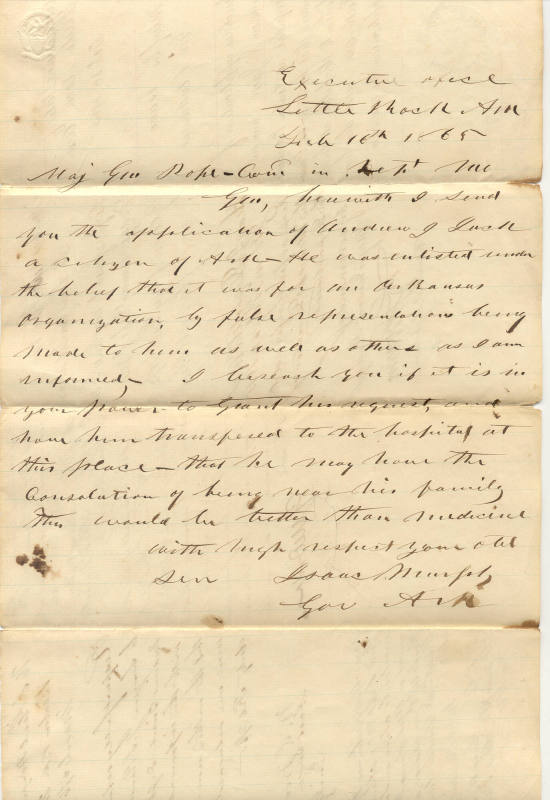 Executive office
Little Rock Ark
Feb 18th 1865
Maj Gen Pope - Com in Dept Mo
Gen, herewith I send
you the application of Andrew J
a citizen of Ark - He was enlisted under
the belief that it was for an Arkansas
Organization, by false representations being
made to him as well as others as I am
informed, - I beseech you if it is in
your power to Grant his request, and
have him transfered to the hospital at
this place - that he may have the
Consolation of being near his family
This would be better than medicine
with high respect your obt
Serv Isaac Murphy
Gov Ark